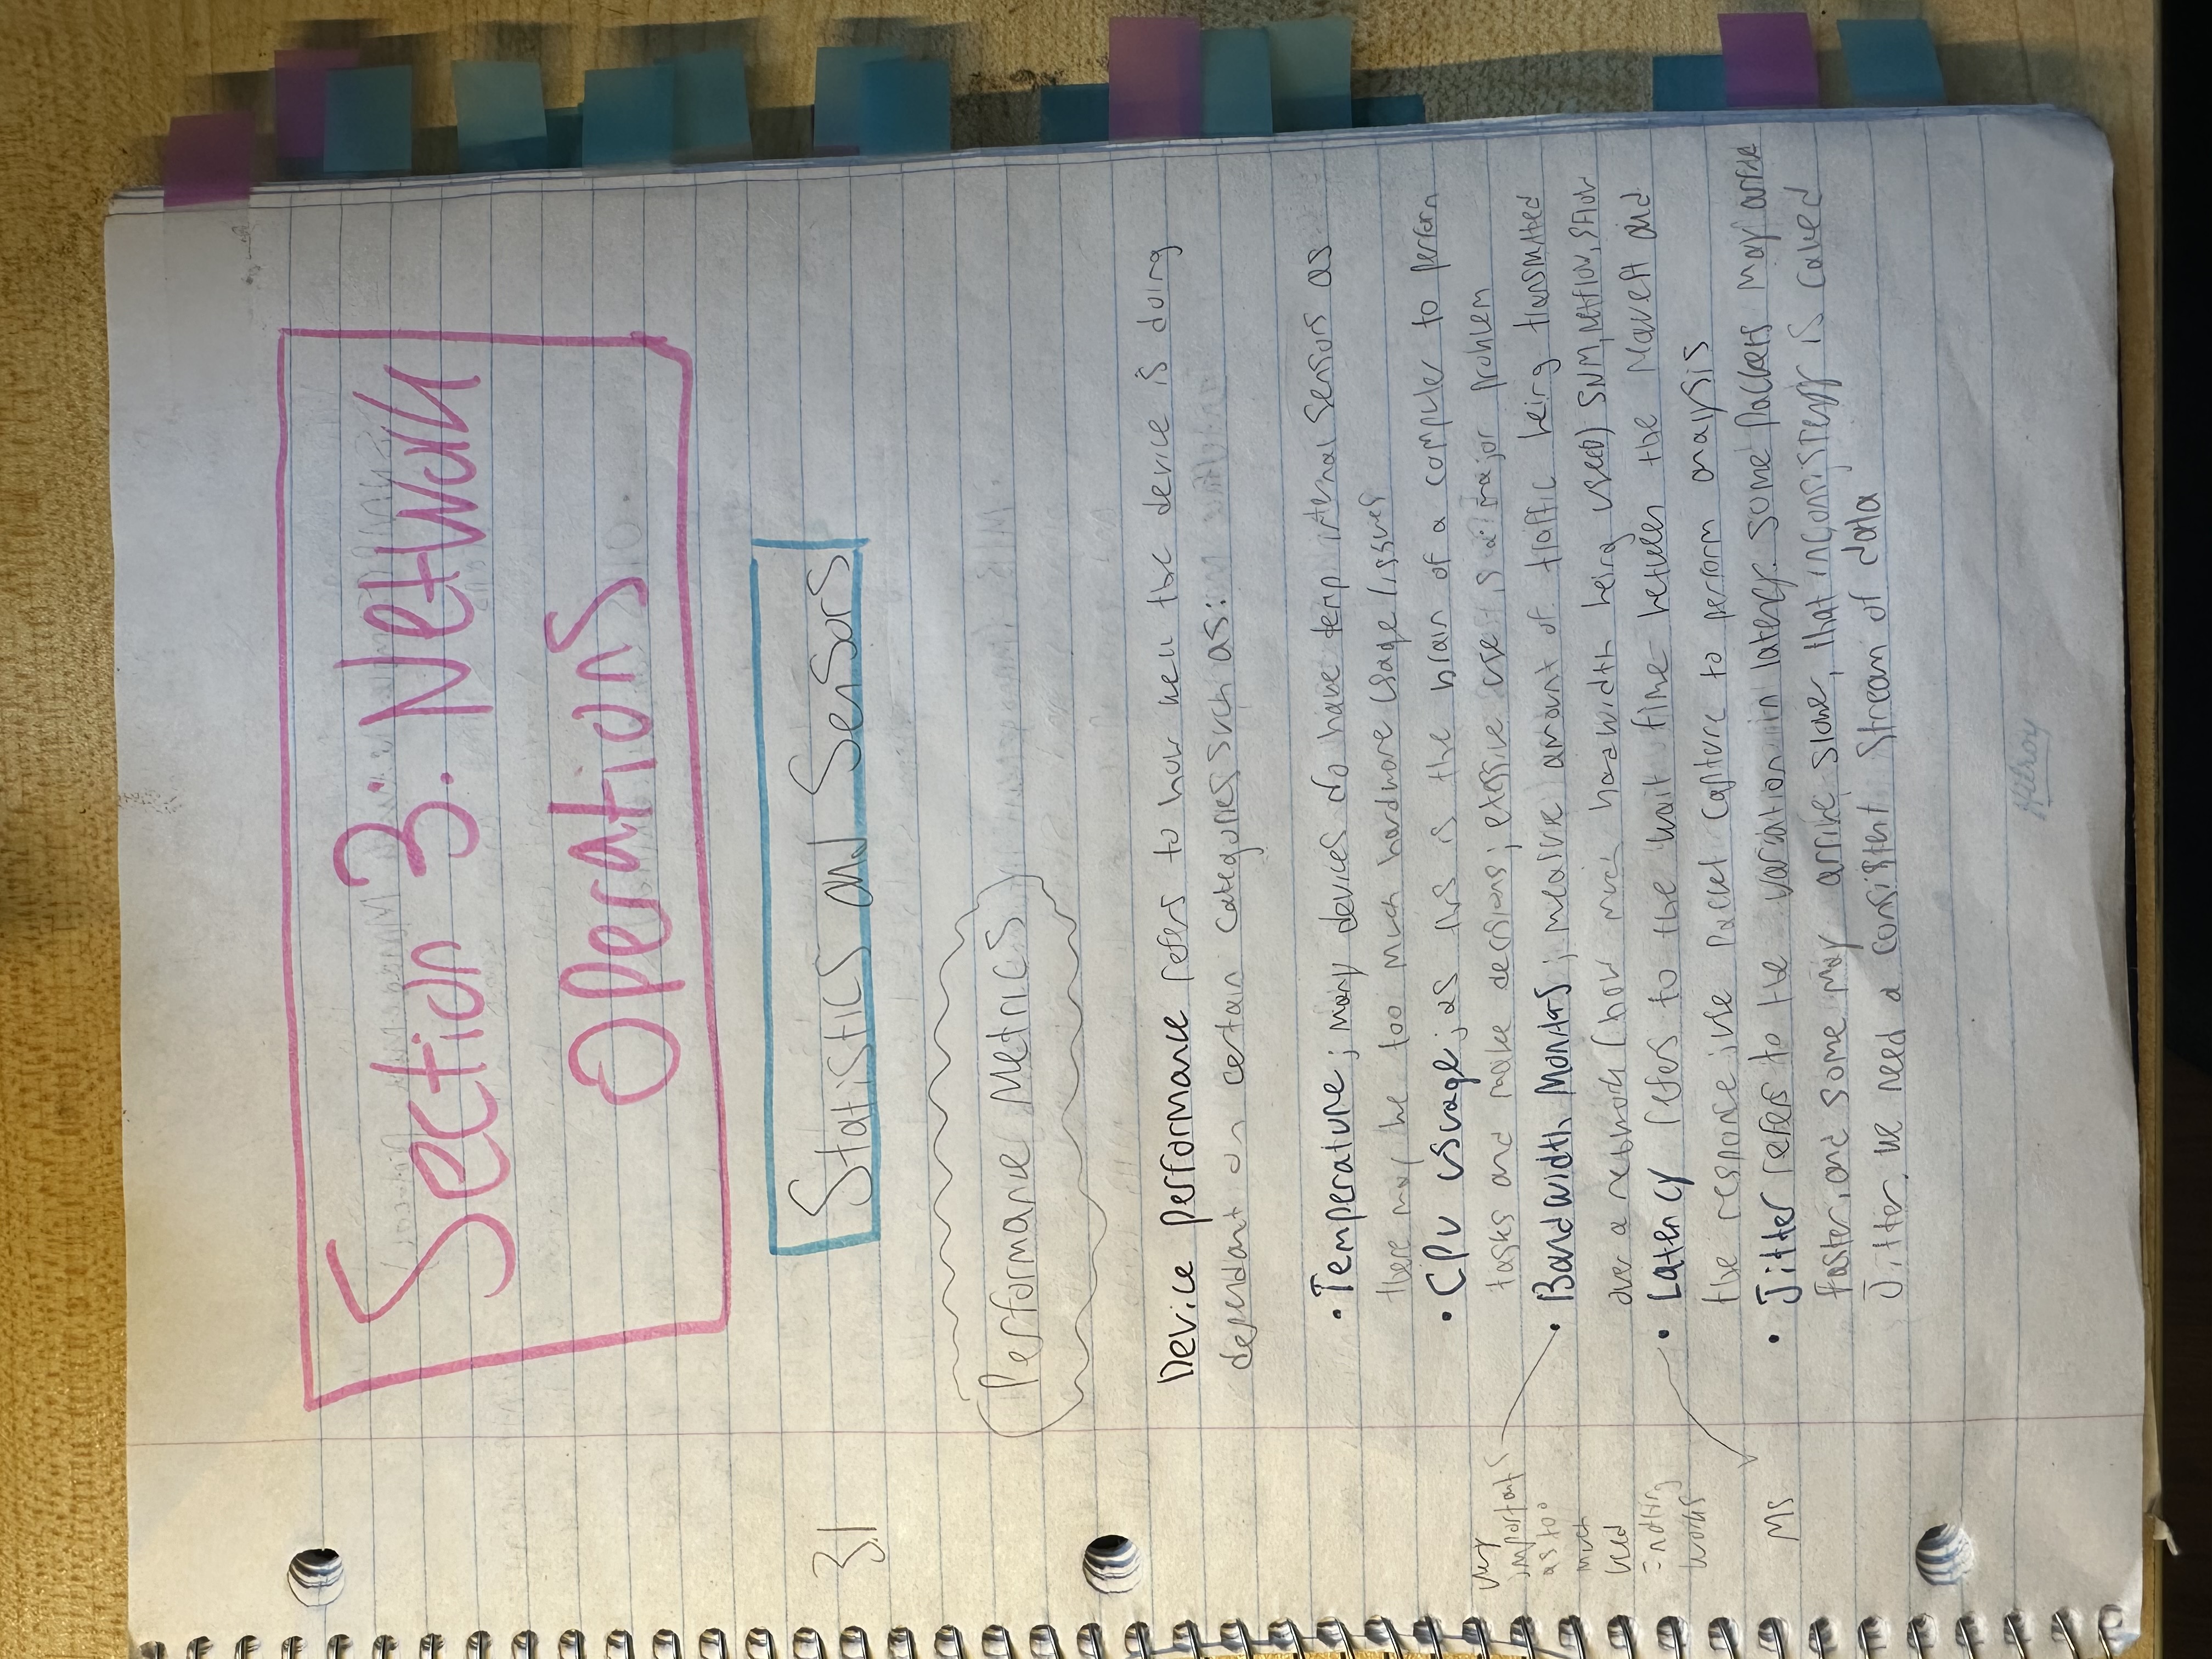 Section 3: Network
Operations
3.1
Statistics and Sensors
Performance Metrics
Device performance refers to how well the device is doing
dependant on certain categories such as:
• Temperature; many devices do have temp internal sensors as
there may be too much hardware usage/issues
• CPU usuage; as this is the brain of a computer to perform
tasks and make decisions; exessive use is a major problem
very
important
as too
much
used
= nothing
works
• Bandwidth Monitors; measure amount of traffic being transmitted
over a network (how much bandwidth being used) SNM, netflow, sflow
• Latency refers to the wait time between the request and
the response; use packet capture to perform analysis
MS
• Jitter refers to the variation in latency. some packets may arrive
faster, and some may arrive slower, that inconsistency is called
Jitter. we need a consistent stream of data
Hilroy